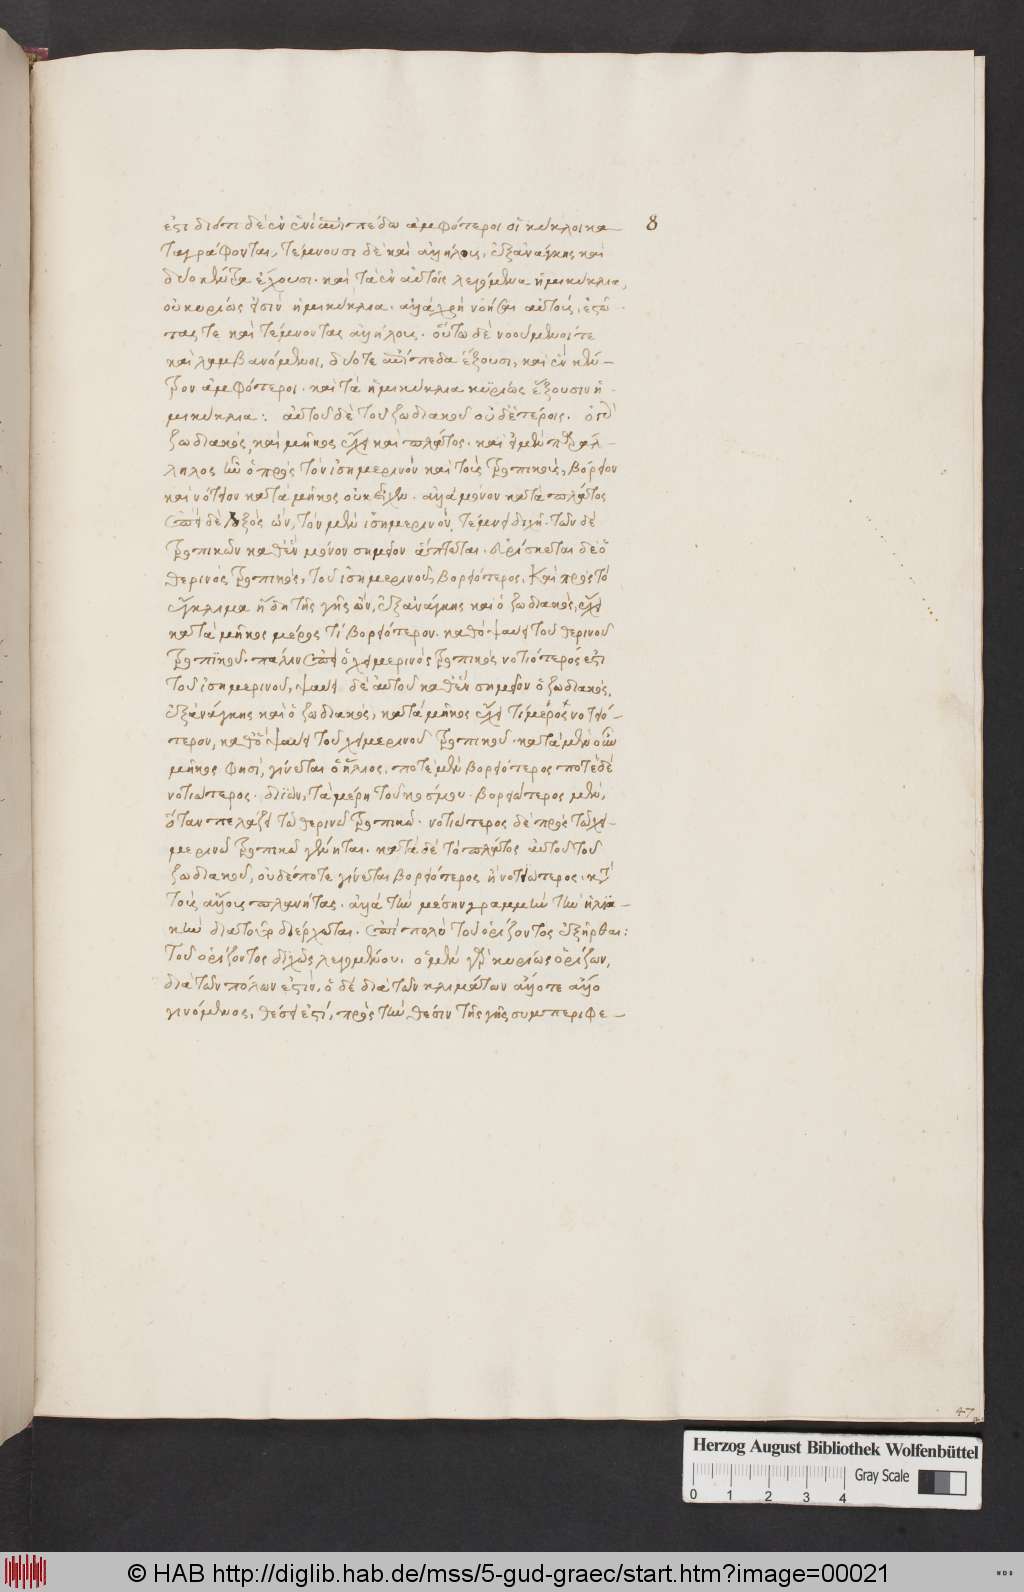 8
ἐστι διότι δὲ ἐν ἑνὶ ἐπιπέδω ἀμφότεροι οἱ κύκλοι κα
ταγράφονται, τέμνουσι δὲ καὶ ἀλλήλους, ἐξανάγκης καὶ
δύο κέντρα ἔχουσι. καὶ τὰ ἐν αὐτοῖς λεγόμενα ἡμικύκλια,
οὐ κυρίως εἰσὶν ἡμικύκλια. ἀλλὰ χρὴ νοῆσαι αὐτοὺς,
τας τε καὶ τέμνοντας ἀλλήλους. οὕτω δὲ νοούμενοί τε
καὶ λαμβανόμενοι, δύο τε ἐπίπεδα ἕξουσι, καὶ ἓν κέν-
τρον ἀμφότεροι. καὶ τὰ ἡμικύκλια κυρίως ἕξουσιν ἡ
μικύκλια: αὐτοῦ δὲ τοῦ ζωδιακοῦ οὐδέτερος.
ζωδιακὸς, καὶ μῆκος ἔχει καὶ πλάτος. καὶ εἰ μὲν παράλ-
ληλος ἦν ὁ πρὸς τὸν ἰσημερινὸν καὶ τοὺς τροπικοὺς, βόρειον
καὶ νότειον κατὰ μῆκος οὐκ εἶχεν. ἀλλὰ μόνον κατὰ πλάτος
ἐπεὶ δὲ λοξὸς ὢν, τὸν μὲν ἰσημερινὸν τέμνει διχῆ. τῶν δὲ
τροπικῶν καθ' ἓν μόνον σημεῖον ἅπτεται. εὑρίσκεται δὲ ὁ
θερινὸς τροπικὸς, τοῦ ἰσημερινοῦ, βορειότερος. Καὶ πρὸς τὸ
ἔγκλιμα ἤδη τῆς γῆς ὢν, ἐξανάγκης καὶ ὁ ζωδιακὸς, ἔχει
κατὰ μῆκος μέρος τί βορειότερον. καθὸ ψαύει τοῦ θερινοῦ
τροπικοῦ. πάλιν ἐπεὶ ὁ χειμερινὸς τροπικὸς νοτιότερός ἐστι
τοῦ ἰσημερινοῦ, ψαύει δὲ αὐτοῦ καθ' ἓν σημεῖον ὁ ζωδιακὸς,
ἐξανάγκης καὶ ὁ ζωδιακὸς, κατὰ μῆκος ἔχει τί μέρος νοτειό-
τερον, καθὸ ψαύει τοῦ χειμερινοῦ τροπικοῦ. κατὰ μὲν οὖν
μῆκος φησὶ, γίνεται ὁ ἥλιος, ποτὲ μὲν βορειότερος ποτὲ δὲ
νοτιώτερος. διιὼν, τὰ μέρη τοῦ κόσμου. βορειότερος μὲν,
ὅταν πελάζει τῶ θερινῶ τροπικῶ. νοτιώτερος δὲ πρὸς τῶ χει-
μερινῶ τροπικῶ γένηται. κατὰ δὲ τὸ πλάτος αὐτοῦ τοῦ
ζωδιακοῦ, οὐδέποτε γίνεται βορειότερος ἢ νοτιώτερος. κατὰ
τοὺς ἄλλους πλανήτας. ἀλλὰ τὴν μέσην γραμμὴν τὴν ἡλια-
κὴν διαπαντὸς διέρχεται. ἐπὶ πολὺ τοῦ ὁρίζοντος ἐξῆρθαι:
τοῦ ὁρίζοντος διχῶς λεγομένου. ὁ μὲν γὰρ κυρίως ὁρίζων,
διὰ τῶν πόλων ἐστὶν, ὁ δὲ διὰ τῶν κλιμάτων ἄλλοτε ἄλλο
γινόμενος, θέσει ἐστὶ, πρὸς τὴν θέσιν τῆς γῆς συμπεριφε-
47
Herzog August Bibliothek Wolfenbüttel
Gray Scale
0 1 2 3 4
© HAB http://diglib.hab.de/mss/5-gud-graec/start.htm?image=00021